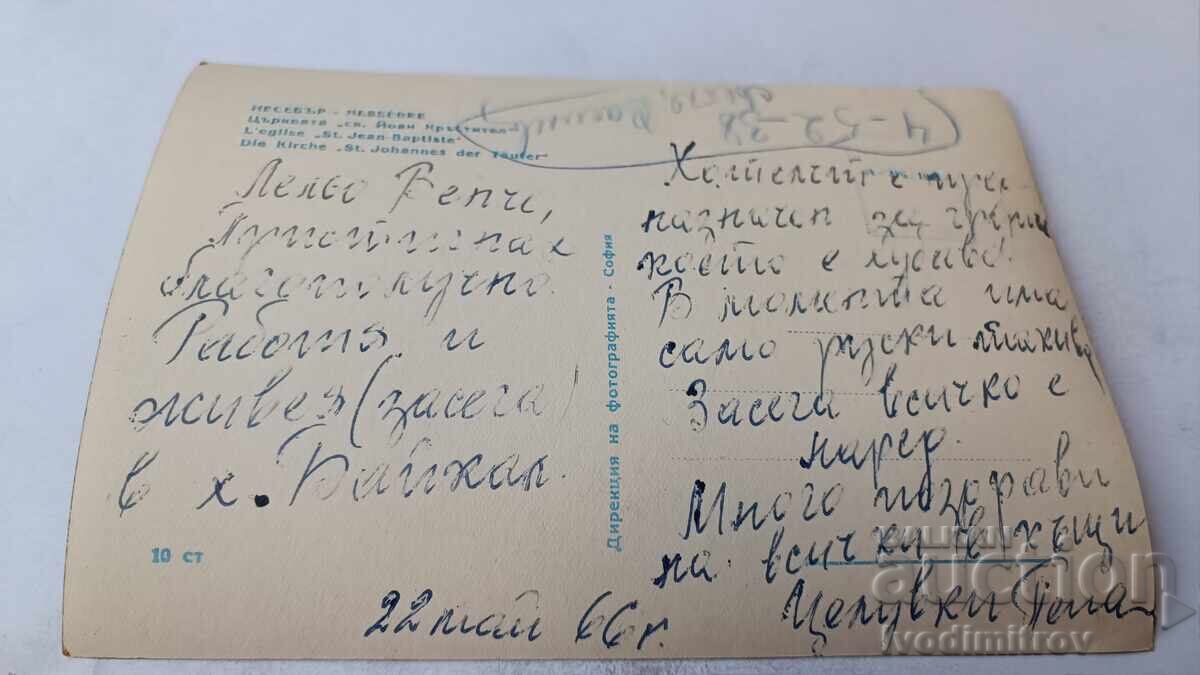 НЕСЕБЪР - NESSEBRE
Църквата „св. Йоан Кръстител“
L'eglise „St. Jean-Baptiste“
Die Kirche „St. Johannes der Täufer“
4-52-38
Лельо Венче,
Пристигнах
благополучно.
Работя и
живея (засега)
в х. Байкал.
22 май 66 г.
10 ст
Дирекция на фотографията - София
Хотелът е пред-
назначен за
което е хубаво.
В момента има
само руски такива
Засега всичко е
наред.
Много поздрави
на всички вкъщи
Целувки
BALKAN
auction
ivodimitrov